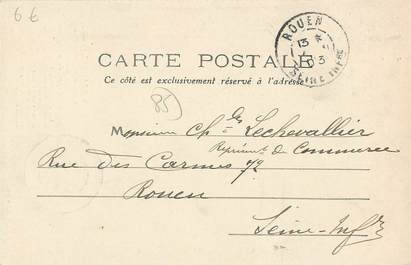 6 €
ROUEN
13
03
SEINE INFRE
CARTE POSTALE
Ce côté est exclusivement réservé à l'adresse
85
Monsieur Ch les Lechevallier
Représent. de Commerce
Rue des Carmes
Rouen
Seine-Infre